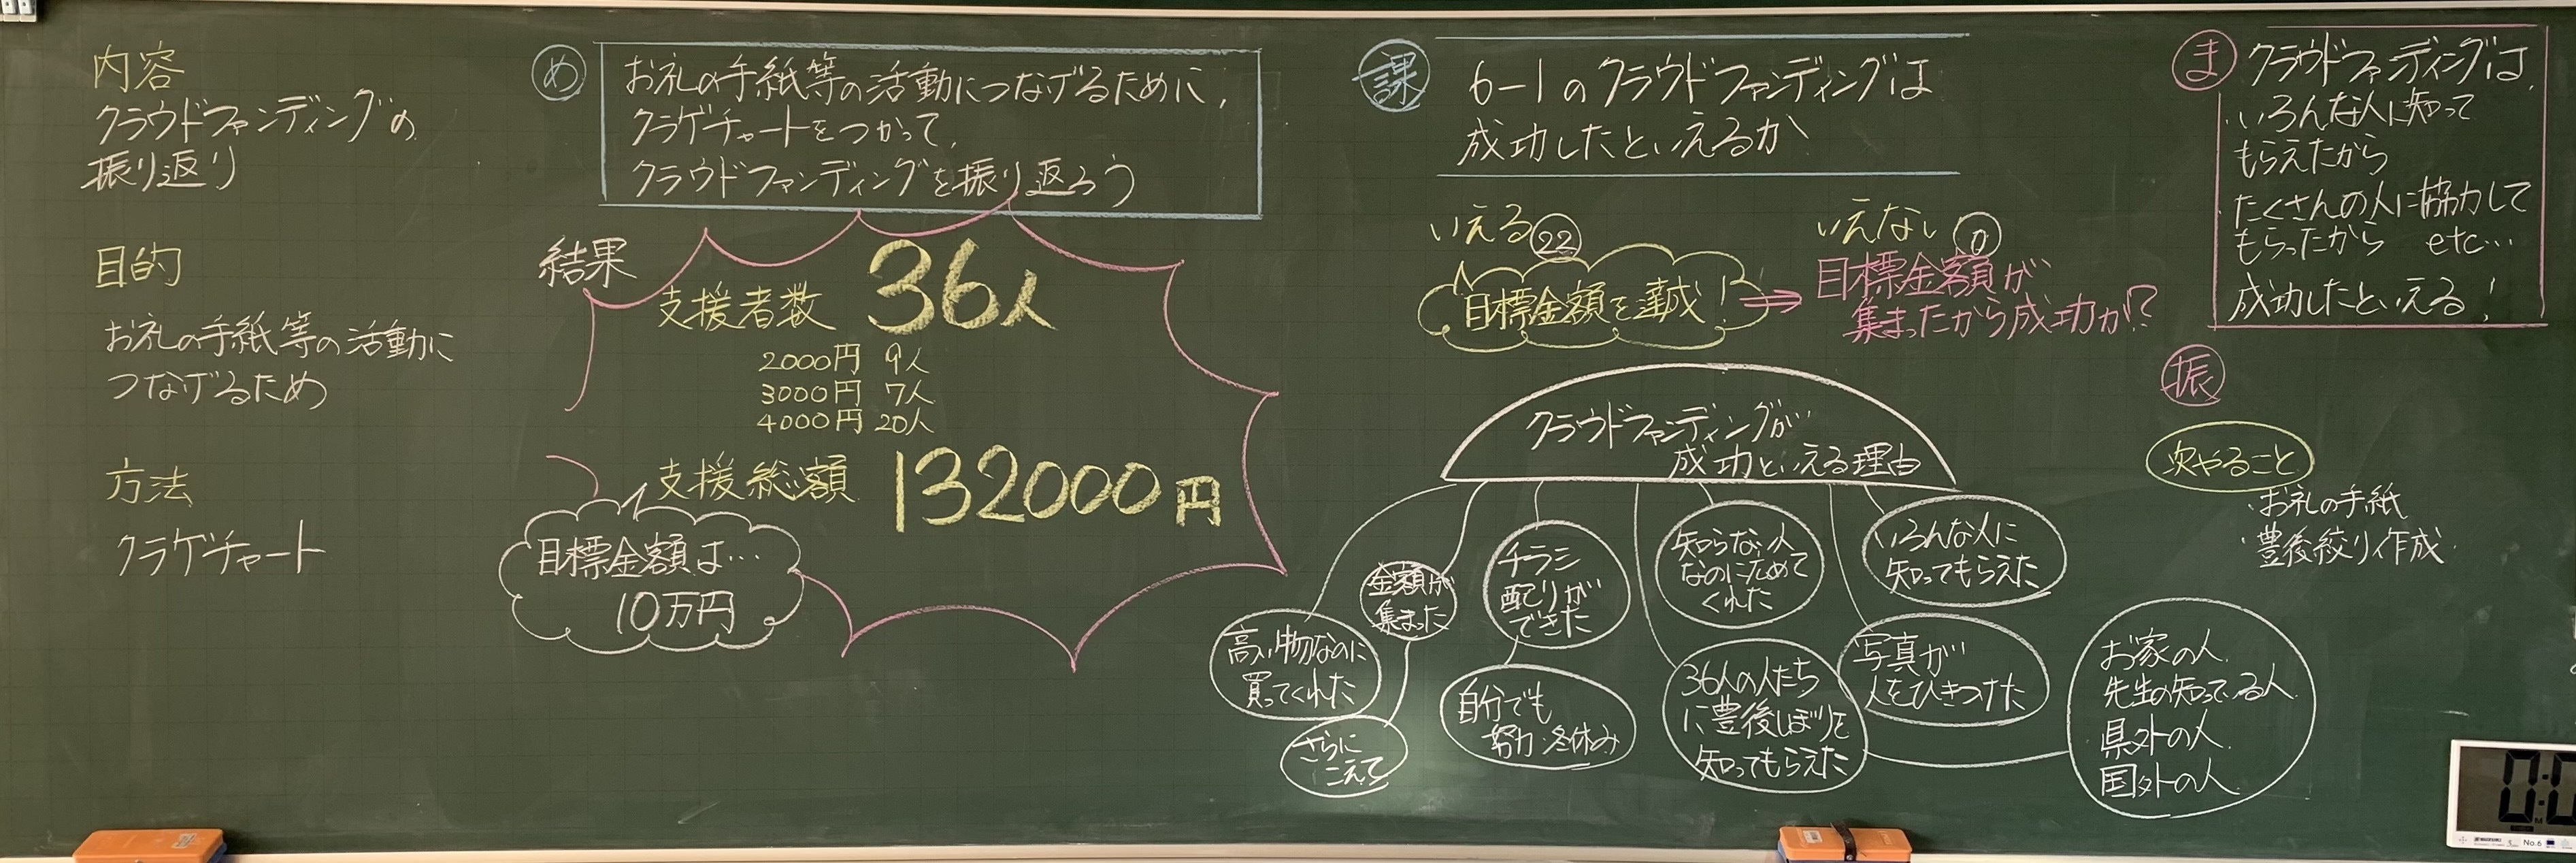 内容
クラウドファンディングの
振り返り
目的
お礼の手紙等の活動に
つなげるため
方法
クラゲチャート
め
お礼の手紙等の活動につなげるために、
クラゲチャートをつかって、
クラウドファンディングを振り返ろう
結果
支援者数 36人
2000円 9人
3000円 7人
4000円 20人
支援総額 132000円
目標金額は…
10万円
課
6-1のクラウドファンディングは
成功したといえるか
いえる 22
いえない 0
目標金額を達成!
⇒
目標金額が
集まったから成功か?
クラウドファンディングが
成功といえる理由
高い物なのに
買ってくれた
金額が
集まった
さらに
こえて
チラシ
配りが
できた
自分でも
努力・冬休み
知らない人
なのにためて
くれた
36人の人たち
に豊後しぼりを
知ってもらえた
いろんな人に
知ってもらえた
写真が
人をひきつけた
お家の人
先生の知っている人
県外の人
国外の人
ま
クラウドファンディングは、
いろんな人に知って
もらえたから
たくさんの人に協力して
もらったから etc…
成功したといえる!
振
次やること
・お礼の手紙
・豊後絞り作成
No.6